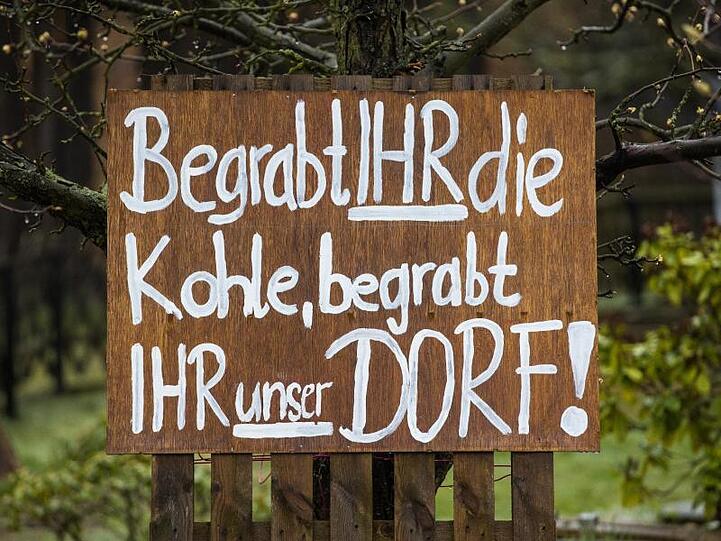 Begrabt IHR die
Kohle, begrabt
IHR unser DORF!